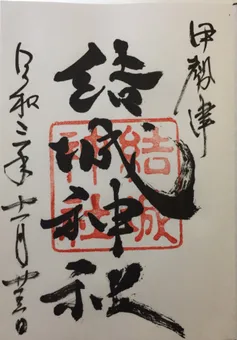 伊勢津
結城神社
結城神社
令和三年十一月廿三日